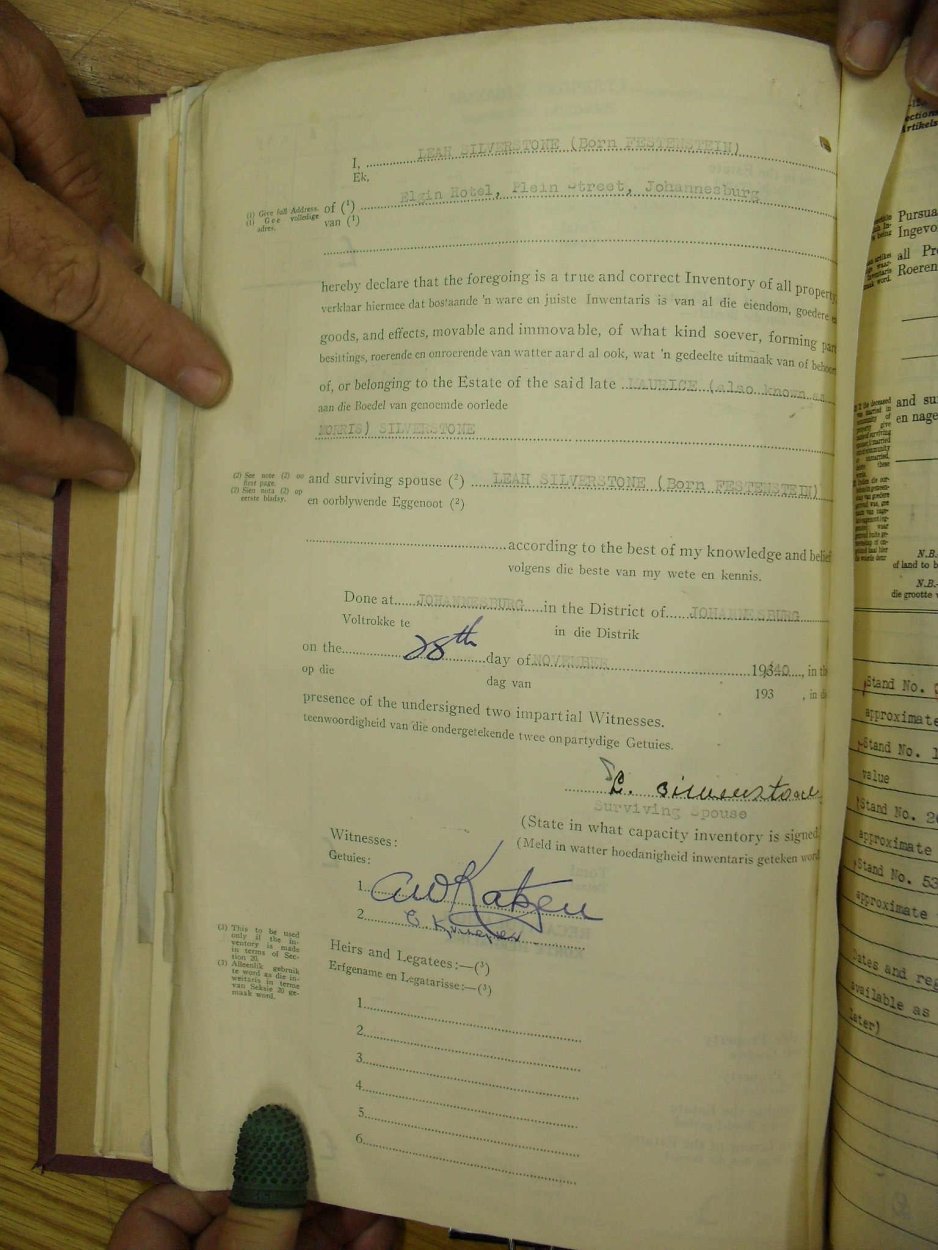 I, LEAH SILVERSTONE (Born FESTENSTEIN)
Ek,
(1) Give full Address.
(1) Gee volledige adres.
of (1) Elgin Hotel, Plein Street, Johannesburg
van (1)
hereby declare that the foregoing is a true and correct Inventory of all property
verklaar hiermee dat bostaande 'n ware en juiste Inwentaris is van al die eiendom, goedere en
goods, and effects, movable and immovable, of what kind soever, forming part
besittings, roerende en onroerende van watter aard al ook, wat 'n gedeelte uitmaak van of behoort
of, or belonging to the Estate of the said late LAURICE (also known as
aan die Boedel van genoemde oorlede
MORRIS) SILVERSTONE
(2) See note (2) on
first page.
(2) Sien nota (2) op
eerste bladsy.
and surviving spouse (2) LEAH SILVERSTONE (Born FESTENSTEIN)
en oorblywende Eggenoot (2)
according to the best of my knowledge and belief
volgens die beste van my wete en kennis.
Done at JOHANNESBURG in the District of JOHANNESBURG
Voltrokke te in die Distrik
on the 28th day of NOVEMBER 1940, in th
op die dag van 193 , in di
presence of the undersigned two impartial Witnesses.
teenwoordigheid van die ondergetekende twee onpartydige Getuies.
L. Silverstone
Surviving Spouse
(State in what capacity inventory is signed
(Meld in watter hoedanigheid inwentaris geteken word
Witnesses:
Getuies:
1. Katzen
2.
(3) This to be used
only if the in-
ventory is made
in terms of Sec-
tion 20.
(3) Alleenlik gebruik
te word as die in-
wentaris in terme
van Seksie 20 ge-
maak word.
Heirs and Legatees:—(3)
Erfgename en Legatarisse:—(3)
1.
2.
3.
4.
5.
6.
Pursua
Ingevo
all Pro
Roeren
and su
en nage
N.B.
of land to b
N.B.
die grootte v
Stand No.
approximate
Stand No. 1
value
Stand No. 2
approximate
Stand No. 53
approximate
Dates and reg
available as
later)